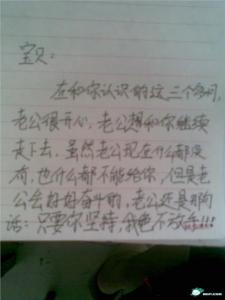 宝贝:
在和你认识的这三个多月,
老公很开心,老公想和你继续
走下去,虽然老公现在什么都没
有,也什么都不能给你,但是老
公会好好奋斗的,老公还是那句
话:只要你坚持,我绝不放手!!!